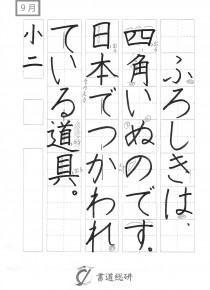 9月
ふろしきは、
四角いぬのです。
日本でつかわれ
ている道具。
小二
書道総研